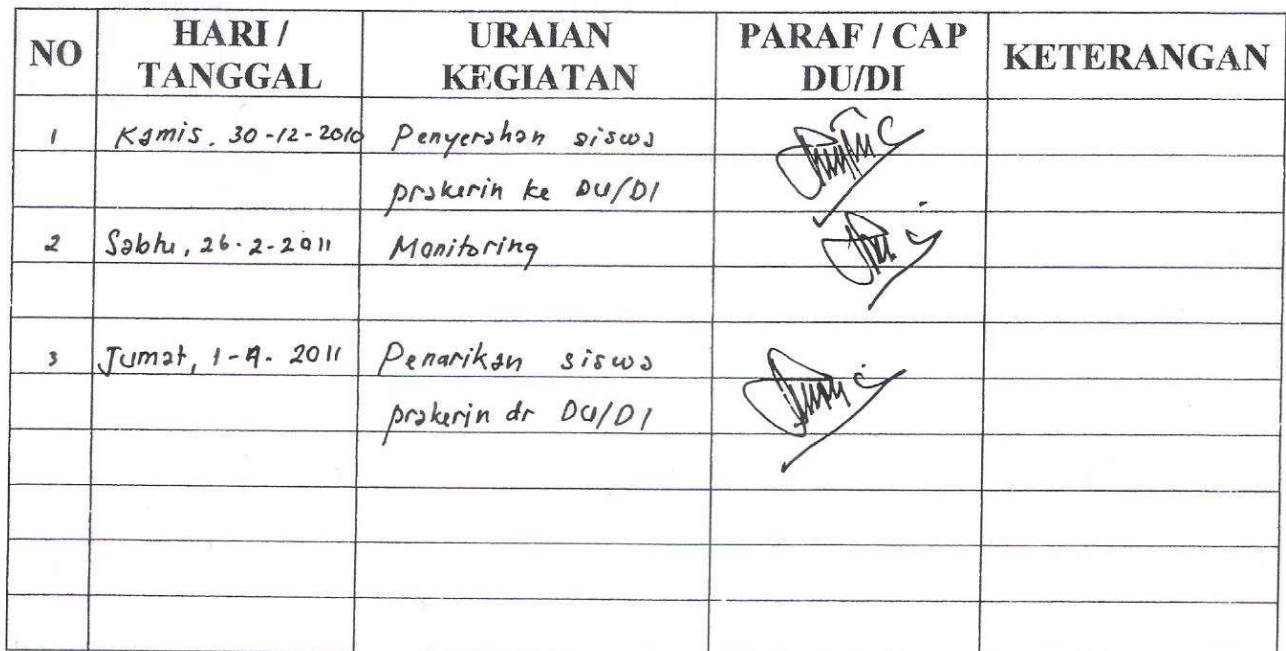 NO HARI / TANGGAL URAIAN KEGIATAN PARAF / CAP DU/DI KETERANGAN
1 Kamis. 30-12-2010 Penyerahan siswa
prakerin ke DU/DI
2 Sabtu, 26-2-2011 Monitoring
3 Jumat, 1-4-2011 Penarikan siswa
prakerin dr DU/DI